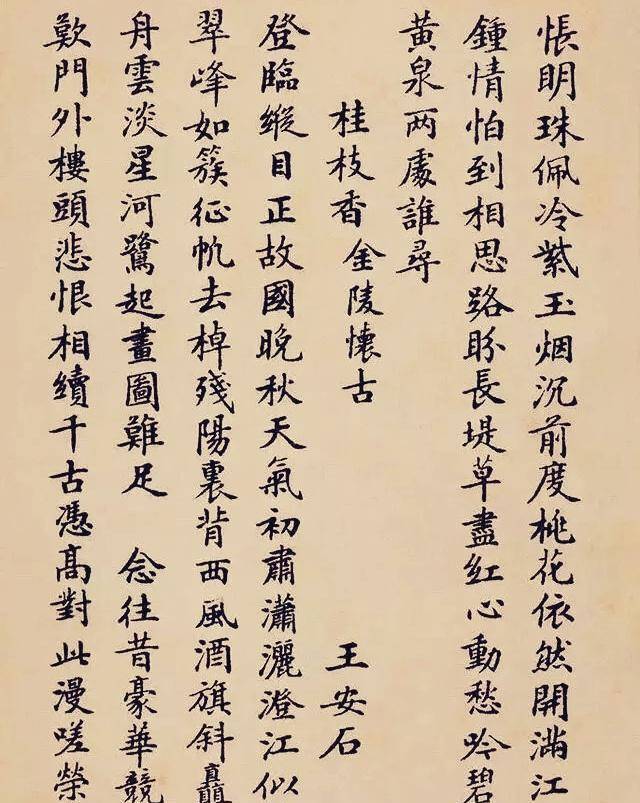 悵明珠佩冷紫玉烟沉前度桃花依然開滿江
鍾情怕到相思路盼長堤草盡紅心動愁吟碧
黃泉两處誰尋
桂枝香金陵懷古 王安石
登臨縱目正故國晚秋天氣初肅瀟灑澄江似
翠峰如簇征帆去棹殘陽裏背西風酒旗斜矗
舟雲淡星河鷺起畫圖難足 念往昔豪華競
歎門外樓頭悲恨相續千古憑高對此漫嗟榮